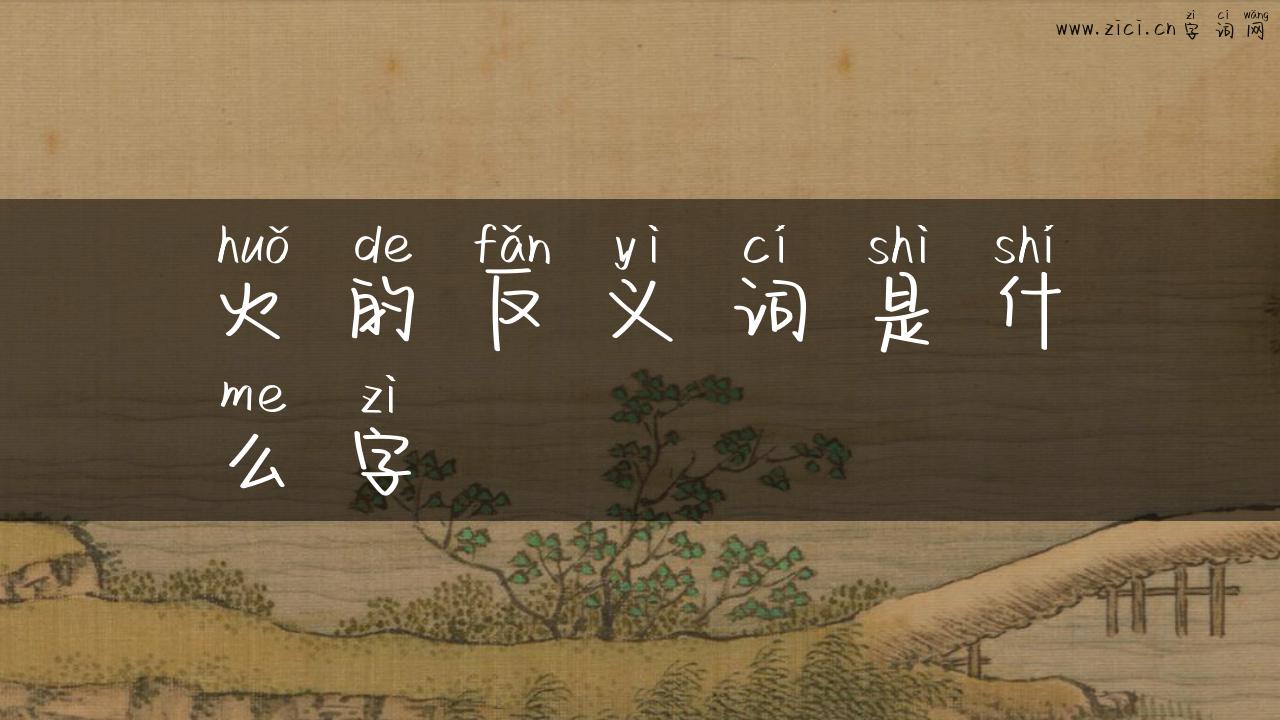 zì cí wǎng
www.zici.cn 字 词 网
huǒ de fǎn yì cí shì shí
火 的 反 义 词 是 什
me zì
么 字